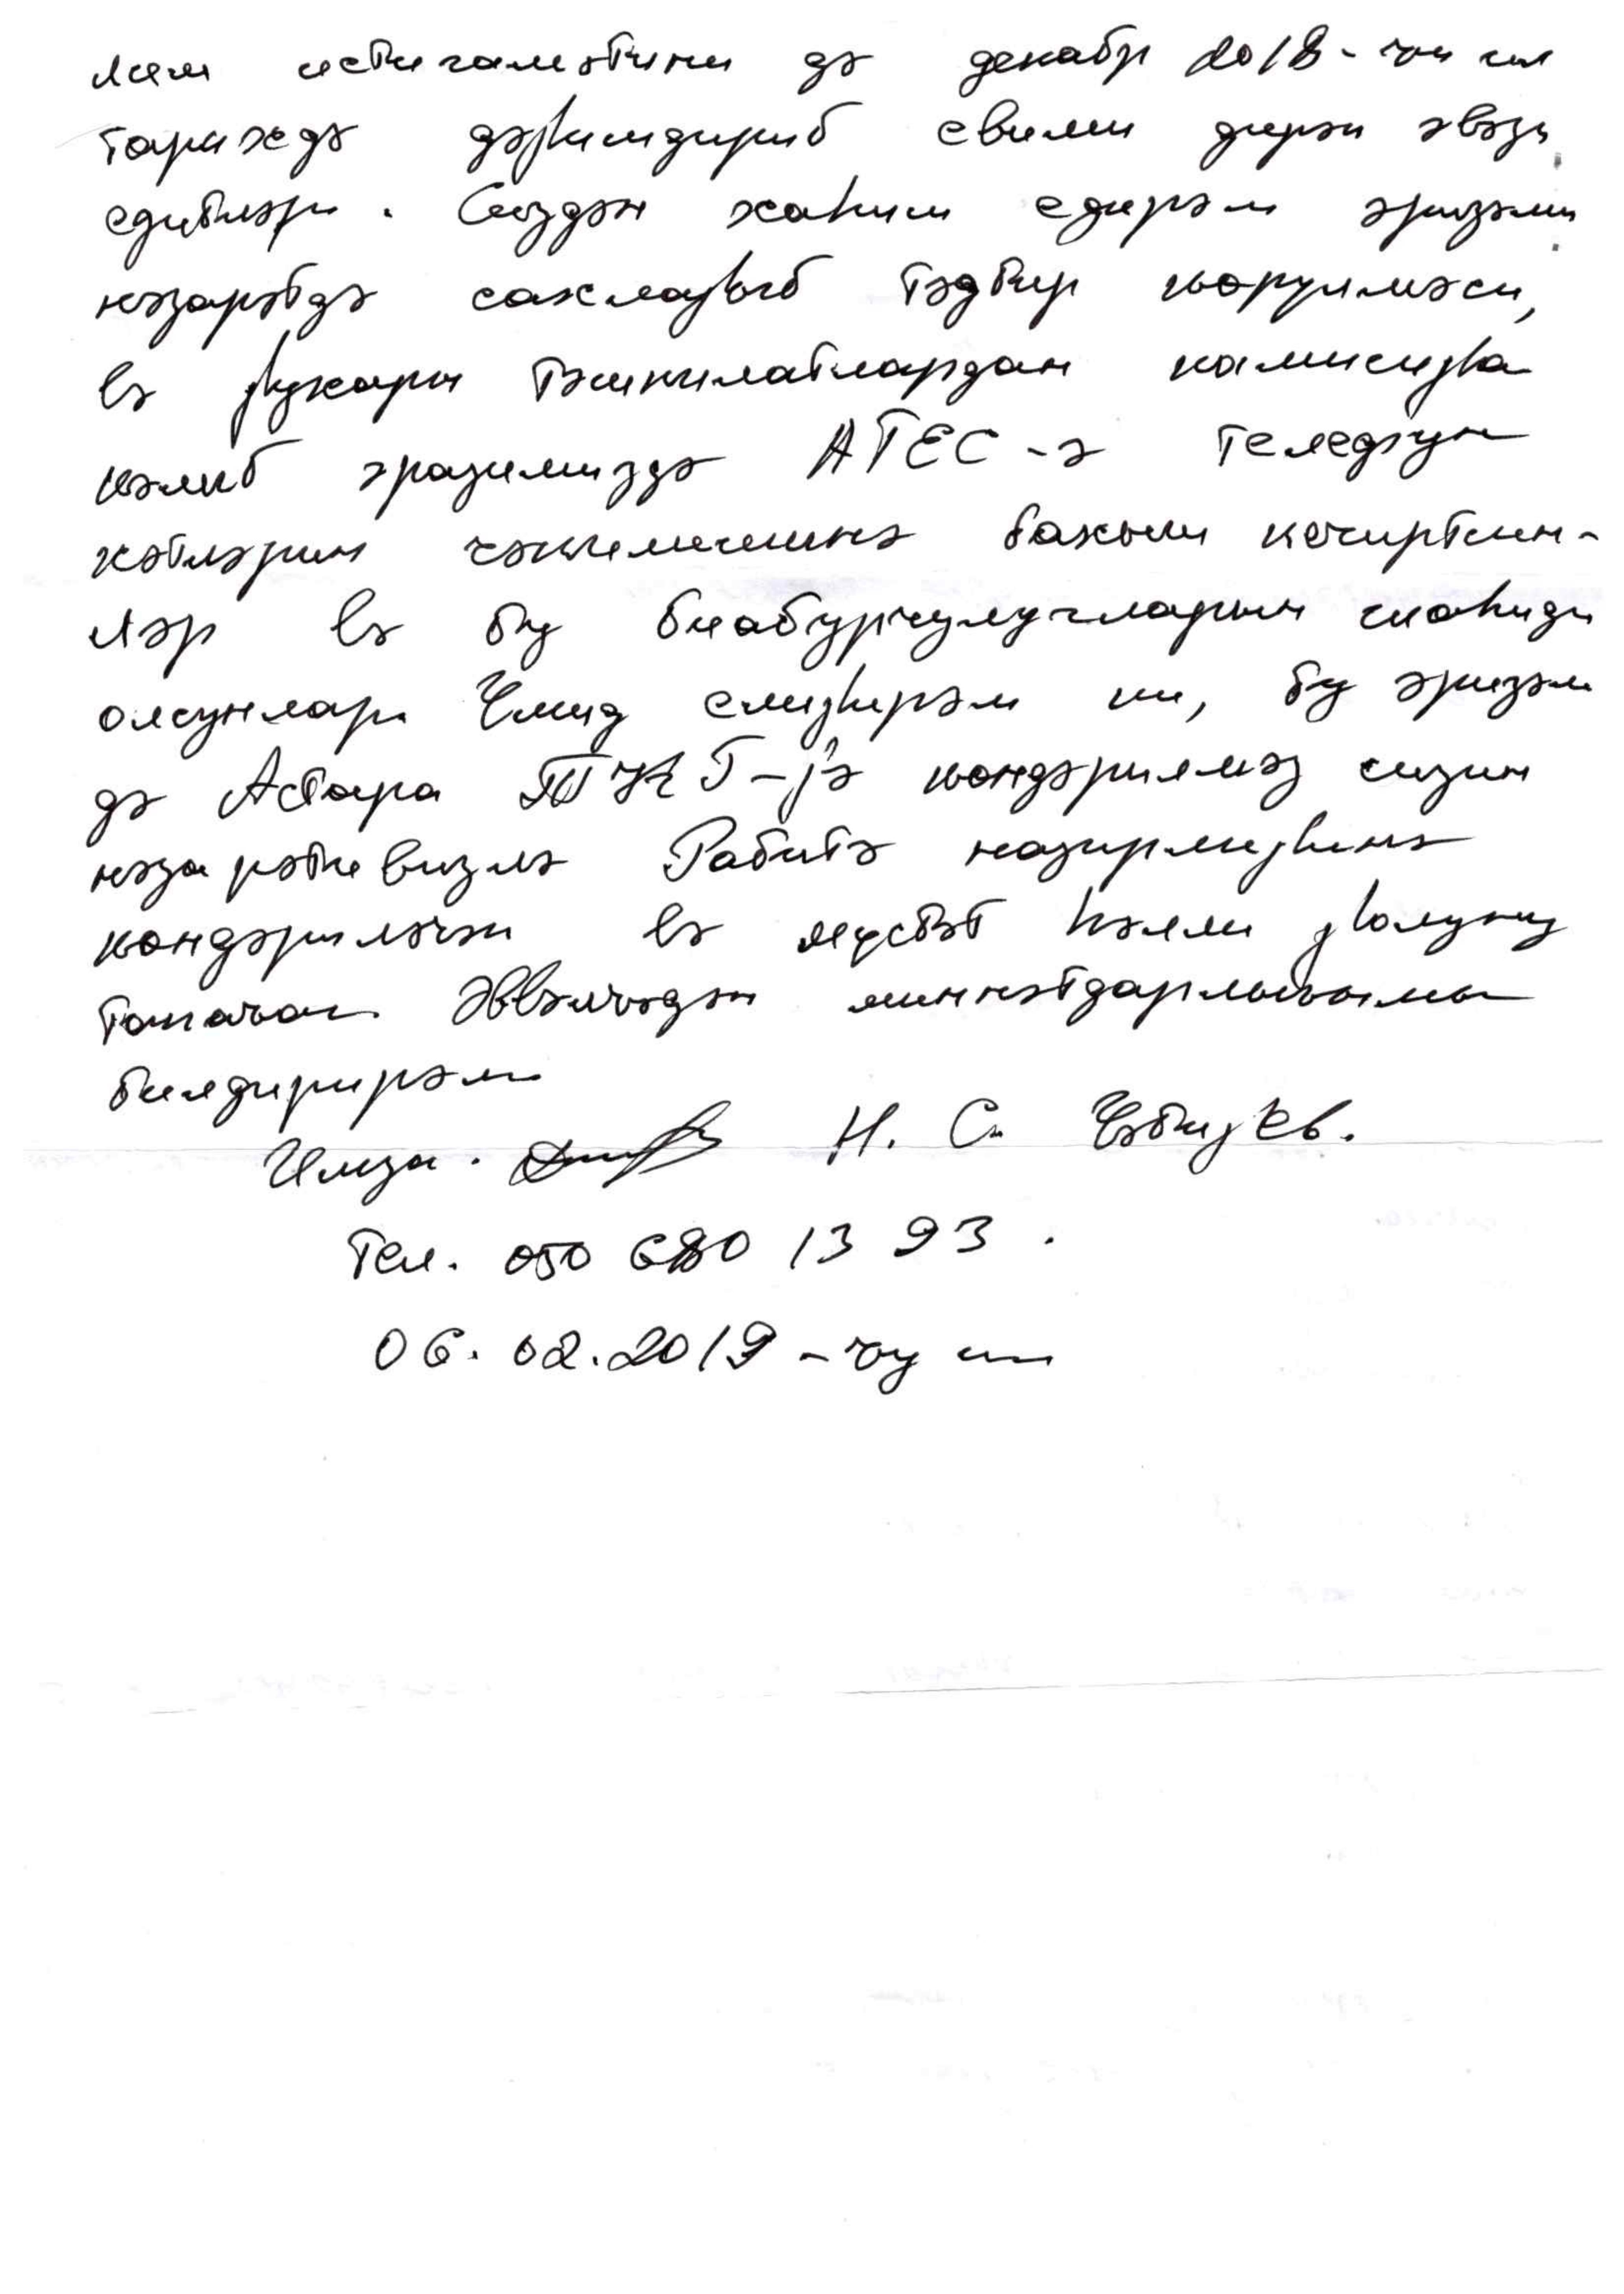 лим истигамәтини дә декабр 2018-чи ил
тарихдә дәјишдириб евими дирәк әвәзи
едибләр. Сиздән хаһиш едирәм әризәми
нәзарәтдә сахлајыб тәдбир көрүлмәси,
вә јухары тәшкилатлардан комисија
кәлиб әразимиздә АТЕС-ә телефун
хәтләрин чәкилмәсинә бахыш кечиртсин-
ләр вә бу биабурчулугларын шаһиди
олсунлар. Үмид едирәм ки, бу әризәм
дә Астара ТКТ-јә көндәрилмәз сизин
нәзарәтинизлә Рабитә назирлијинә
көндәриләчәк вә мүсбәт һәлли јолуну
тапачаг. Әввәлчәдән миннәтдарлығымы
билдирирәм
Имза. Н. С. Үәбијев.
Тел. 050 680 13 93.
06.02.2019-чу ил